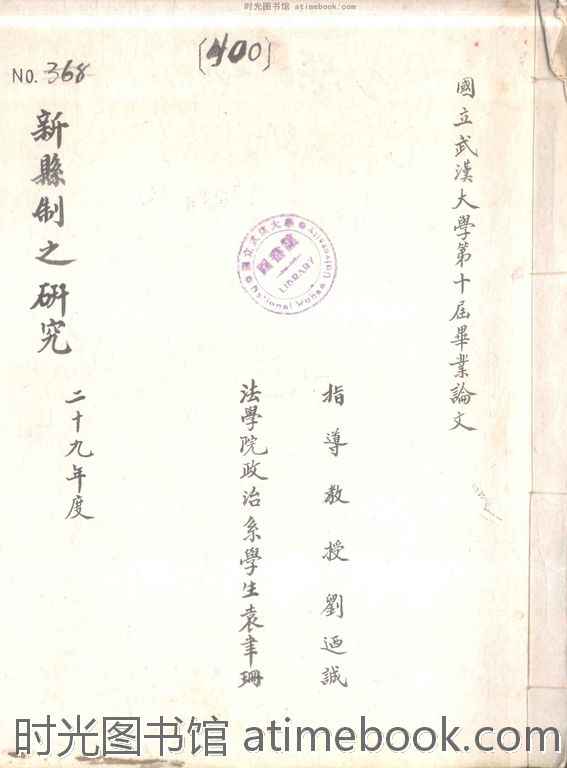 时光图书馆 atimebook.com
[400]
NO. 368
國立武漢大學第十屆畢業論文
指導教授 劉迺誠
法學院政治系學生袁聿珊
新縣制之研究
二十九年度
國立武漢大學
圖書館
LIBRARY
National Wuhan University
时光图书馆 atimebook.com